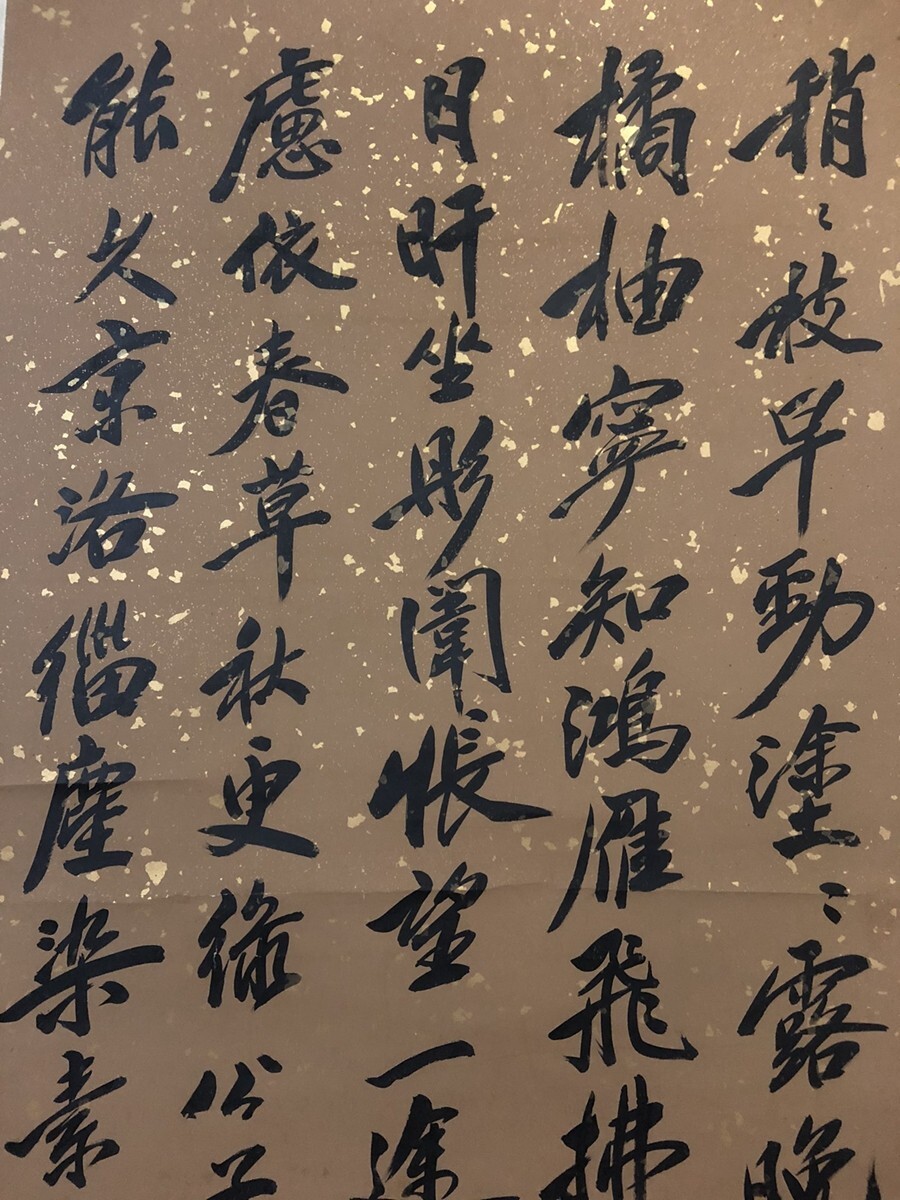 稍〻枝早勁塗〻露晚
橘柚寧知鴻雁飛拂
日旰坐彤闈悵望一途
慮依春草秋更緑公子
能久京洛緇塵染素